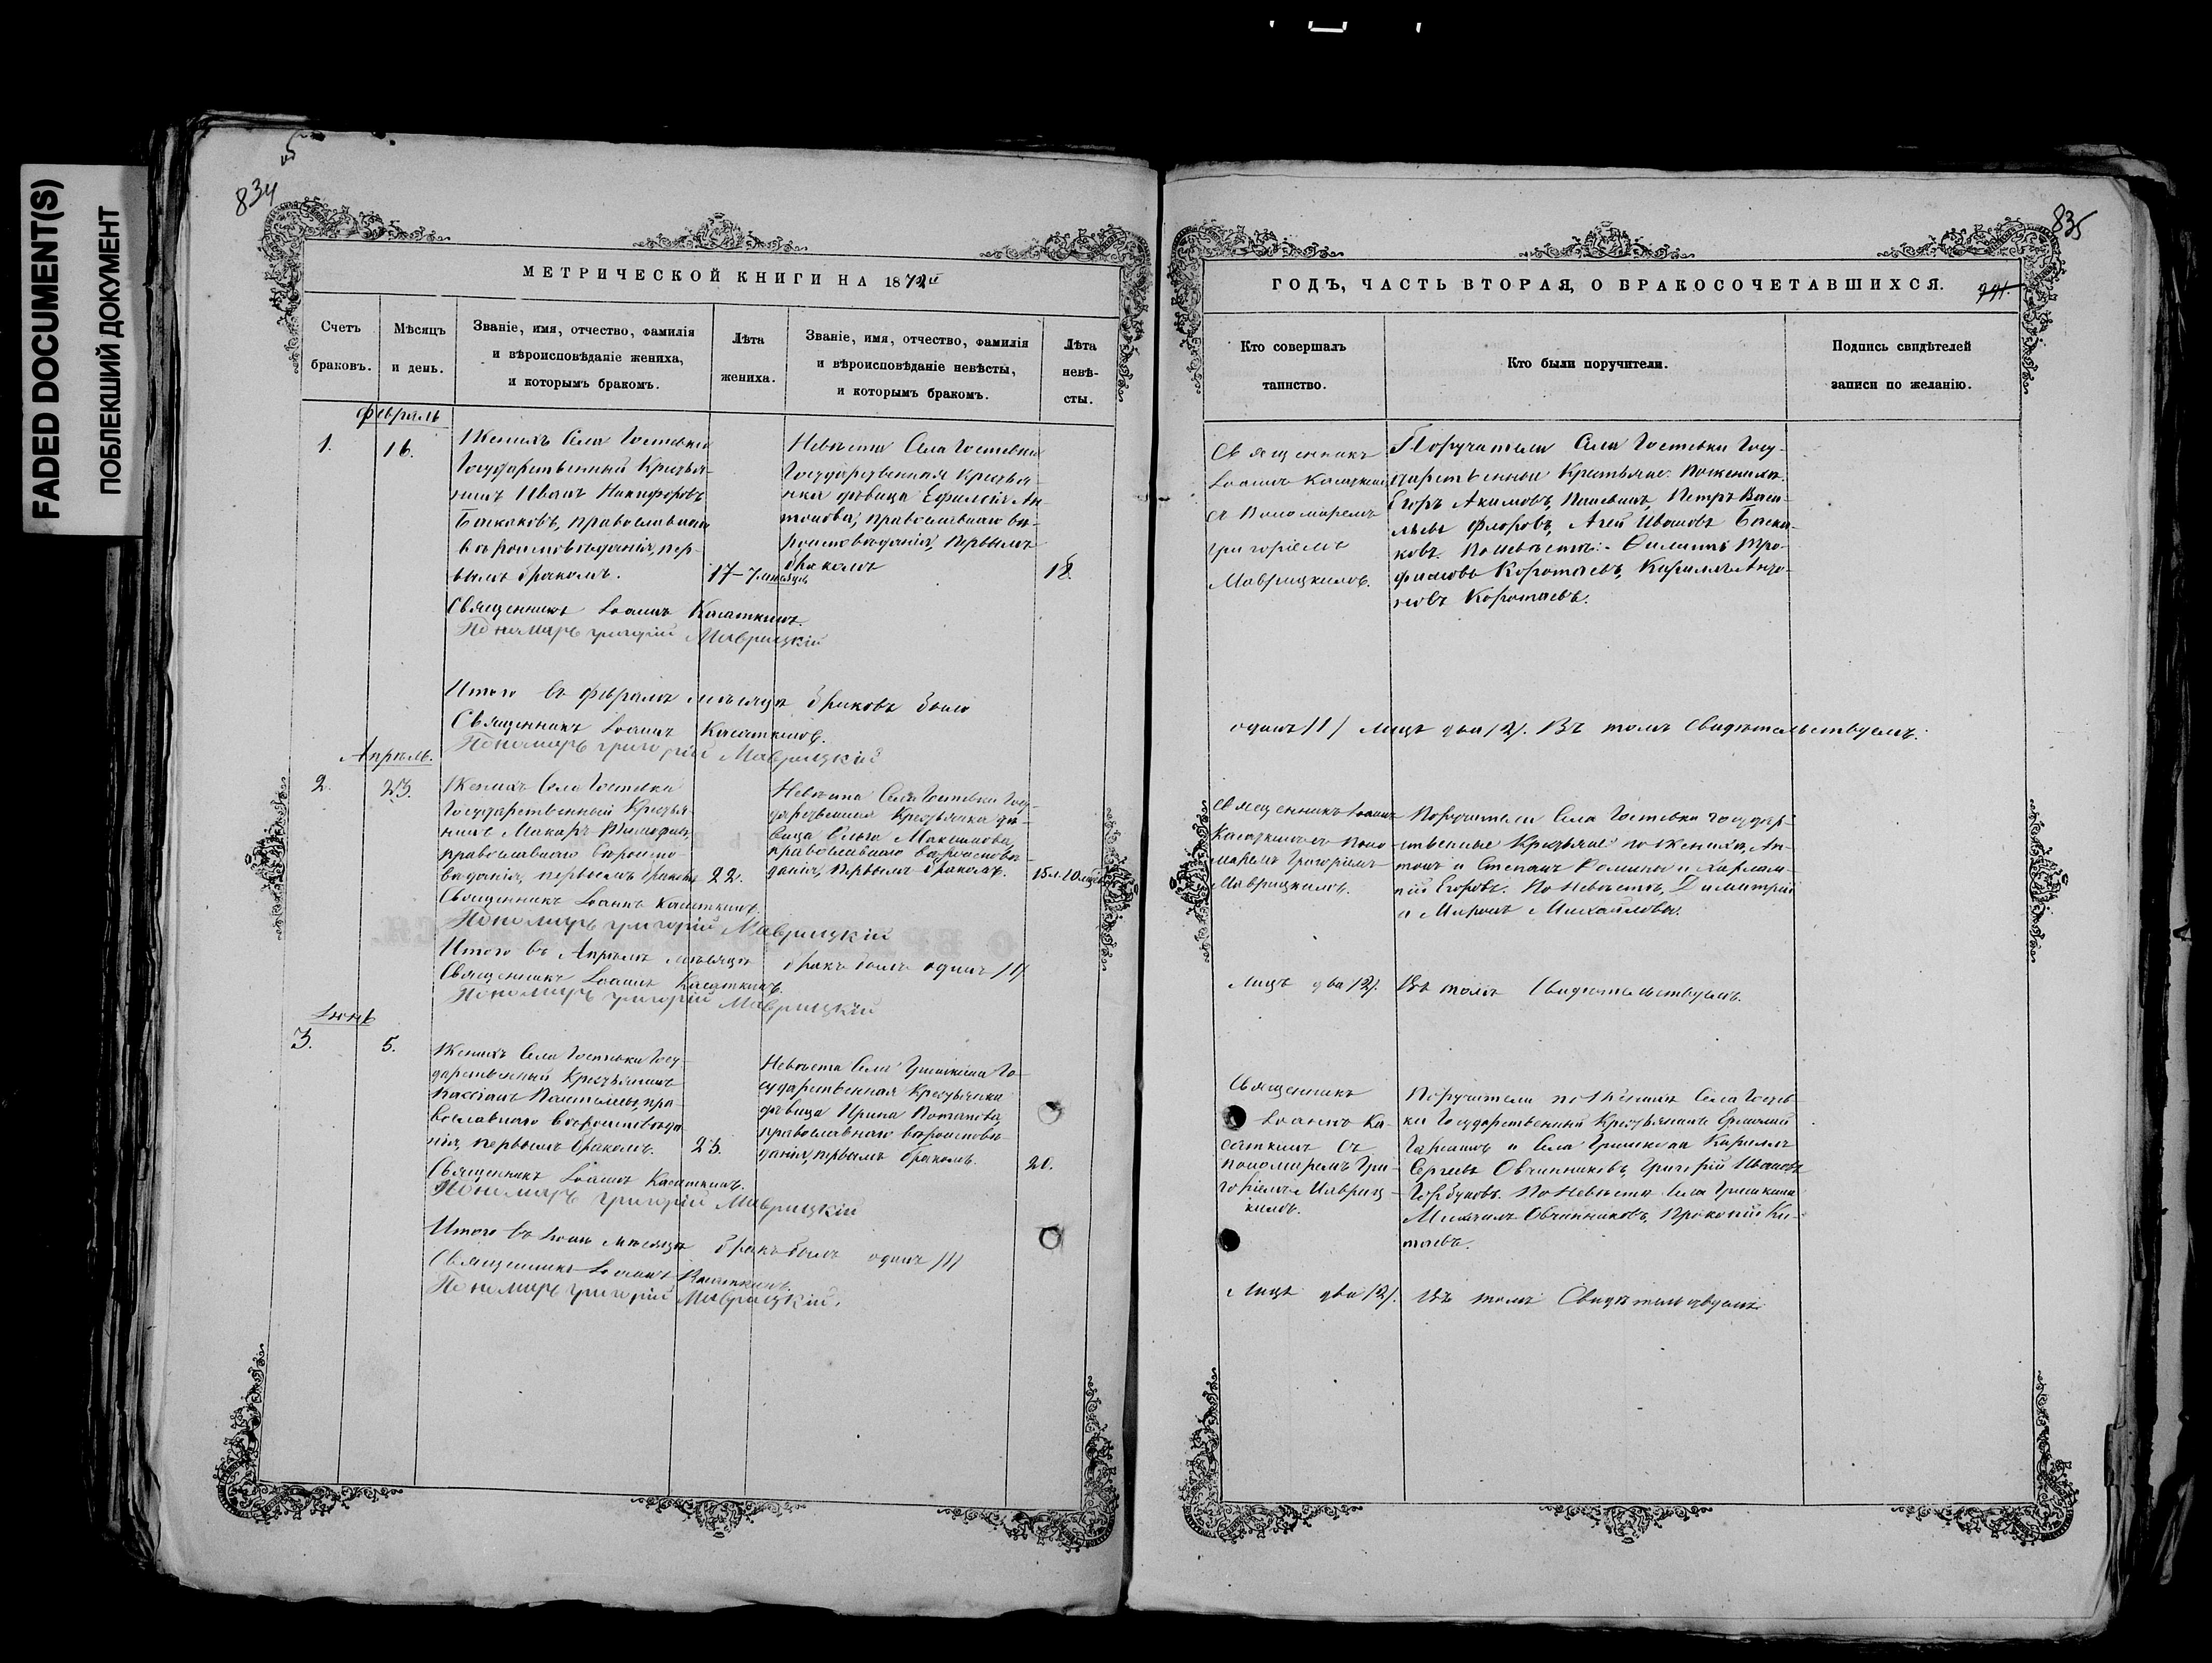 FADED DOCUMENT(S)
ПОБЛЕКШИЙ ДОКУМЕНТ
834
835
МЕТРИЧЕСКОЙ КНИГИ НА 1872й
Счетъ браковъ.
Мѣсяцъ и день.
Званіе, имя, отчество, фамилія
и вѣроисповѣданіе жениха,
и которымъ бракомъ.
Лѣта
жениха.
Званіе, имя, отчество, фамилія
и вѣроисповѣданіе невѣсты,
и которымъ бракомъ.
Лѣта
невѣ-
сты.
Февраль
1.
16.
Женихъ Села Гостевки
Государственный Крестья-
нинъ Иванъ Никифоровъ
Баскаковъ, православнаго
вѣроисповѣданія, пер-
вымъ бракомъ.
17-7 мѣсяцъ
Невѣста Села Гостевки
Государственная Крестья-
нка дѣвица Ефимія Ан
тонова, православнаго вѣ-
роисповѣданія, первымъ
бракомъ
18.
Священникъ Іоаннъ Касаткинъ.
Пономарь Григорій Маврицкій
Итого въ Февралѣ мѣсяцѣ браковъ было
Священникъ Іоаннъ Касаткинъ.
Пономарь Григорій Маврицкій
Апрѣль.
2.
23.
Женихъ Села Гостевки
Государственный Крестья
нинъ Макаръ
православнаго вѣроиспо
вѣданія, первымъ бракомъ
22.
Невѣста Села Гостевки Госу-
дарственная Крестьянка дѣ-
вица Максимова,
православнаго вѣроисповѣ-
данія, первымъ бракомъ.
15 л. 10 мѣсяц
Священникъ Іоаннъ Касаткинъ.
Пономарь Григорій Маврицкій
Итого въ Апрѣлѣ мѣсяцѣ бракъ былъ одинъ /1/
Священникъ Іоаннъ Касаткинъ.
Пономарь Григорій Маврицкій
Іюнь
3.
5.
Женихъ Села Гостевки Госу-
дарственный Крестьянинъ
Кассіанъ пра-
вославнаго вѣроисповѣда
нія, первымъ бракомъ.
23.
Невѣста Села Гришкина Го-
сударственная Крестьянка
дѣвица Ирина Потапова,
православнаго вѣроисповѣ-
данія, первымъ бракомъ.
20.
Священникъ Іоаннъ Касаткинъ.
Пономарь Григорій Маврицкій
Итого въ Іюнѣ мѣсяцѣ бракъ былъ одинъ /1/
Священникъ Іоаннъ Касаткинъ.
Пономарь Григорій Маврицкій.
ГОДЪ, ЧАСТЬ ВТОРАЯ, О БРАКОСОЧЕТАВШИХСЯ.
Кто совершалъ
таинство.
Кто были поручители.
Подпись свидѣтелей
записи по желанію.
Священникъ
Іоаннъ Касаткинъ
съ Пономаремъ
Григоріемъ
Маврицкимъ.
Поручители Села Гостевки Госу-
дарственные Крестьяне. По женихѣ.
Егоръ Акимовъ, Петръ Васи-
льевъ Флоровъ, Агей Ивановъ Баска-
ковъ. По невѣстѣ:- Филиппъ Тро-
фимовъ Коротаевъ, Кириллъ Анто-
новъ Коротаевъ.
одинъ /1/ лицъ два /2/. Въ томъ свидѣтельствуемъ.
Священникъ Іоаннъ
Касаткинъ съ Поно
маремъ Григоріемъ
Маврицкимъ.
Поручители Села Гостевки государ-
ственные Крестьяне по женихѣ, Ан-
тонъ и Степанъ Ромины и Харлам-
пій Егоровъ. По Невѣстѣ, Димитрій
и Миронъ Михайловы.
Лицъ два /2/. Въ томъ Свидѣтельствуемъ.
Священникъ
Іоаннъ Ка-
саткинъ съ
пономаремъ Гри-
горіемъ Мавриц-
кимъ.
Поручители по женихѣ Села Гостев-
ки Государственный Крестьянинъ
и Села Гришкина Кириллъ
Сергѣевъ Овчинниковъ, Григорій Ивановъ
Горбуновъ. По Невѣстѣ Села Гришкина
Михаилъ Овчинниковъ, Прокопій Ки-
таевъ.
Лицъ два /2/. Въ томъ Свидѣтельствуемъ